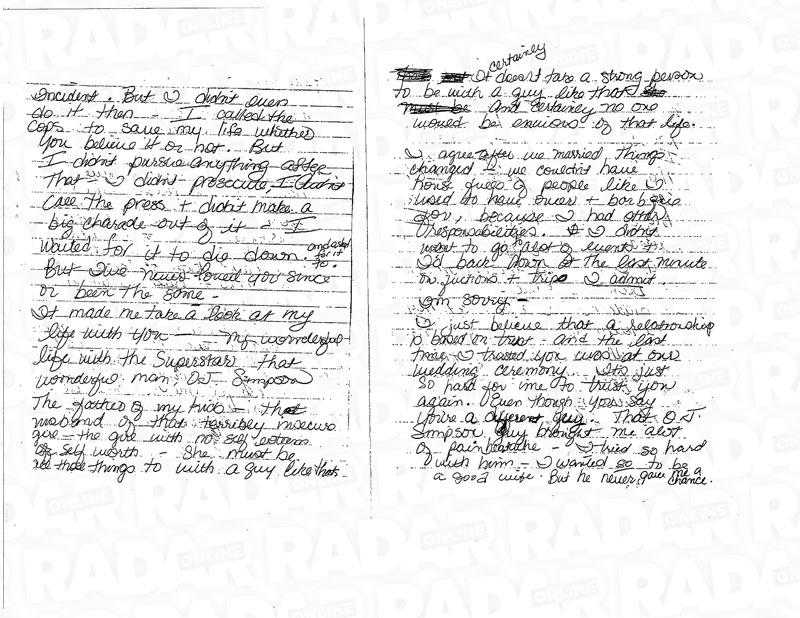 incident. But I didn't even
do it then - I called the
cops to save my life whether
you believe it or not. But
I didn't pursue anything after
that - I didn't prosecute, I didn't
call the press + didn't make a
big charade out of it - I
waited for it to die down. and asked for it to.
But I've never loved you since
or been the same -
It made me take a look at my
life with you - my wonderful
life with the Superstar that
wonderful man, O.J. Simpson
The father of my kids - that
husband of that terribly insecure
girl - the girl with no self esteem
of self worth - She must be
all those things to with a guy like that.
certainly
It doesn't take a strong person
to be with a guy like that
And certainly no one
would be envious of that life.
I agree after we married things
changed - we couldn't have
hord guess of people like I
used to have over + barbque
for, because I had other
responsibilities. I didn't
want to go to alot of events +
I'd back down at the last minute
on fuctions + trips I admit.
I'm sorry -
I just believe that a relationship
is based on trust - and the last
time I trusted you was at our
wedding ceremony. It's just
so hard for me to trust you
again. Even though you say
you're a different guy. That O.J.
Simpson guy brought me alot
of pain heartache - I tried so hard
with him - I wanted so to be
a good wife. But he never gave me a chance.
RADAR
ONLINE